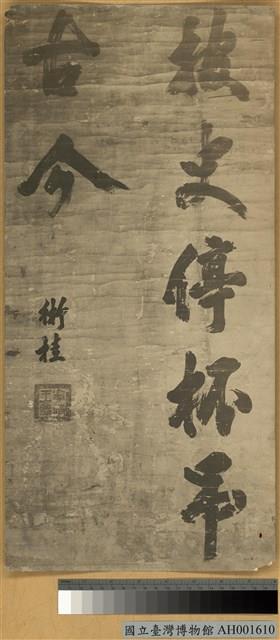 披史停杯弔
古今
術桂
國立臺灣博物館 AH001610